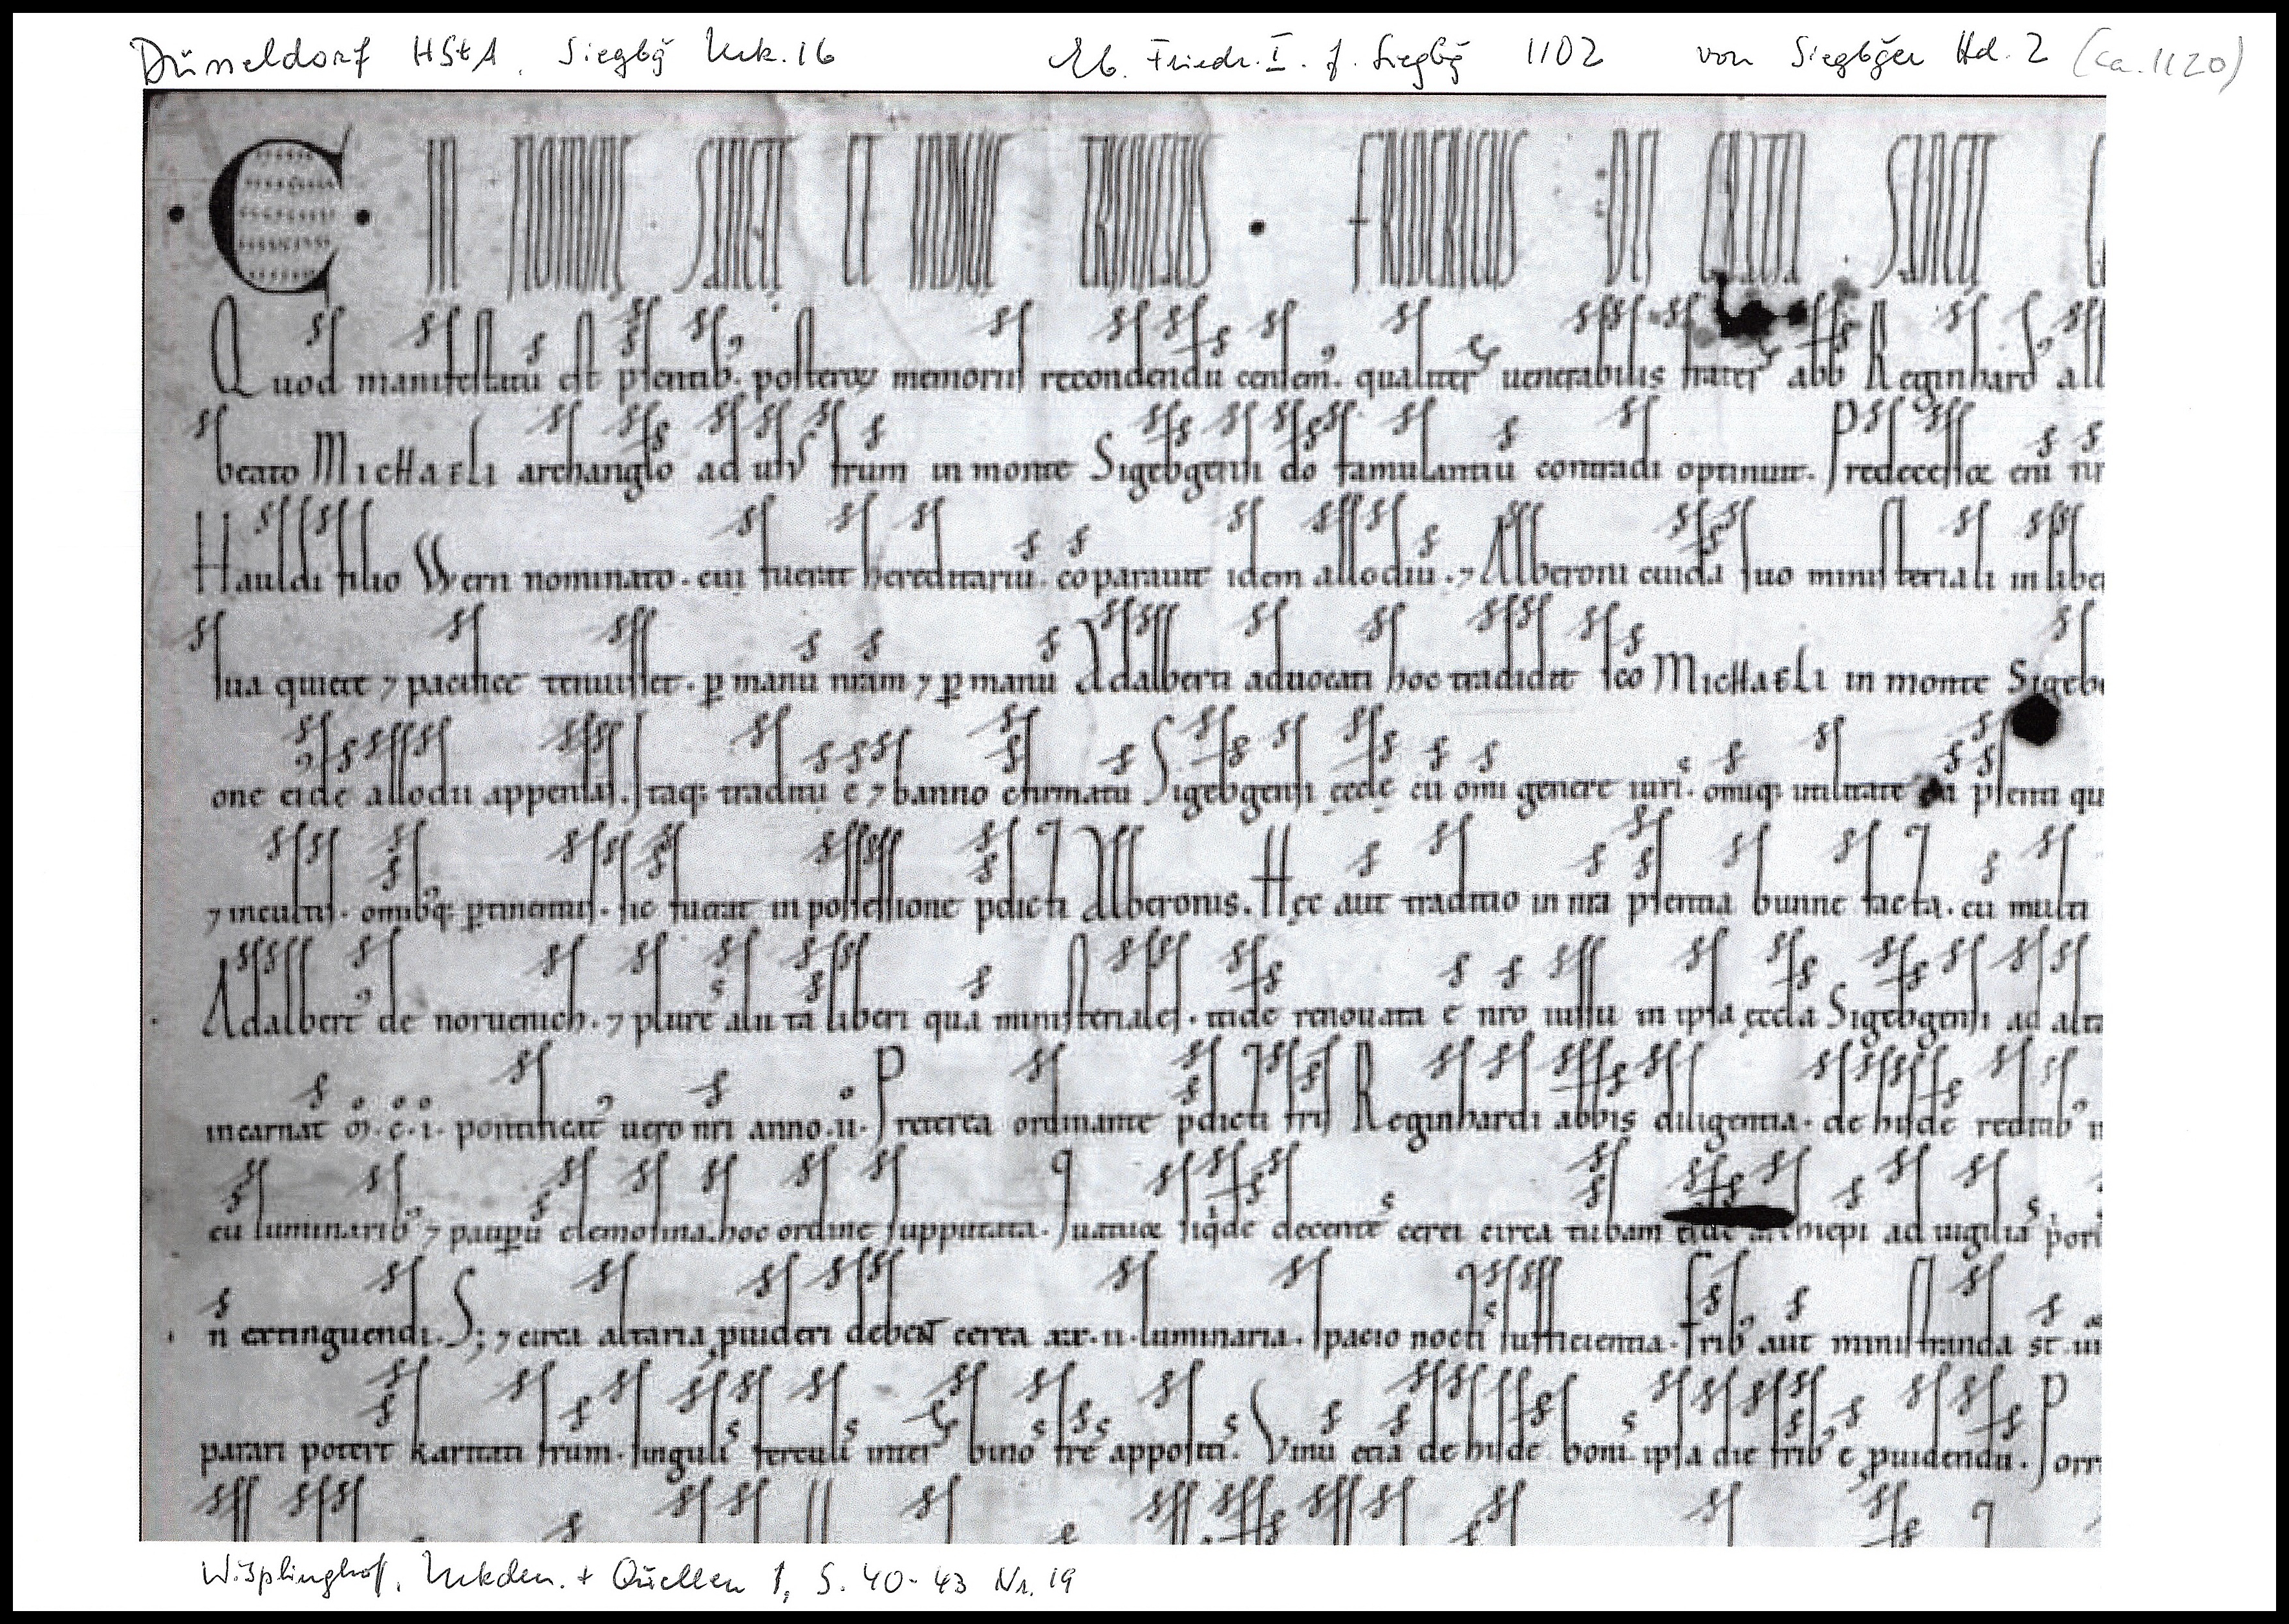 Düsseldorf HStA. Siegbg̃ Urk. 16 Eb. Friedr. I. f. Siegbg̃ 1102 von Siegbg̃er Hd. 2 (ca. 1120)
C IN NOMINE SANCTE ET INDIVIDUE TRINITATIS · FRIDERICUS DEI GRATIA SANCTE
Quod manifestatū est p̄sentib᾽. posteroꝝ memoriis recondendū censem᾽. qualiter uenerabilis frater abb Reginhard᾽
beato Michaeli archangl̄o ad usū fr̄um in monte Sigebgensi dō famulantiū contradi optinuit. Predecessor eni nr̄
Hauldi filio Wern nominato. cui fuerat hereditariū. cōparauit idem allodiū. ⁊ Alberoni cuidā suo ministeriali in
sua quiete ⁊ pacifice tenuisset. ꝑ manū nr̄am ⁊ ꝑ manū Adalberti aduocati hoc tradidit sc̄o Michaeli in monte Sigeb
one eidē allodii appensas. Itaq; traditū ē ⁊ banno c̄firmatū Sigebgensi eccl̄ę cū om̄i genere iuris. om̄iq; utilitate p̄senti qu
⁊ incultis. om̄ib᾽q; ꝑtinentiis. sic fuerat in possessione p̄dicti Alberonis. Hęc aut traditio in nr̄a p̄sentia bunne facta. cū multi
Adalbert᾽ de noruenich. ⁊ plures alii tā liberi quā ministeriales. itidē renouata ē nr̄o iussu in ipsa ęccl̄a Sigebgensi ad alta
incarnat ō. c̊. i̊. pontificat᾽ uero nr̄i anno. ii. Preterea ordinante p̄dicti fr̄is Reginhardi abb̄is diligentia. de hisdē redītib᾽
cū luminarib᾽ ⁊ pauꝑū elemosina. hoc ordine supputata. siqͥdē decentes cerei circa tubam archiep̄i ad uigilias
n̄ extinguendi. S; ⁊ circa altaria ꝓuideri debent cerea xx. ii. luminaria. spacio noctis sufficientia. Fr̄ib᾽ aut ministranda st̄
parari poterit karitati fr̄um. singulis ferculis inter binos fr̄es appositis. Vinū etiā de hisdē bonis ipsa die fr̄ib᾽ ē ꝓuidendū. Porr
Wisplinghoff, Urkden. + Quellen 1, S. 40-43 Nr. 19